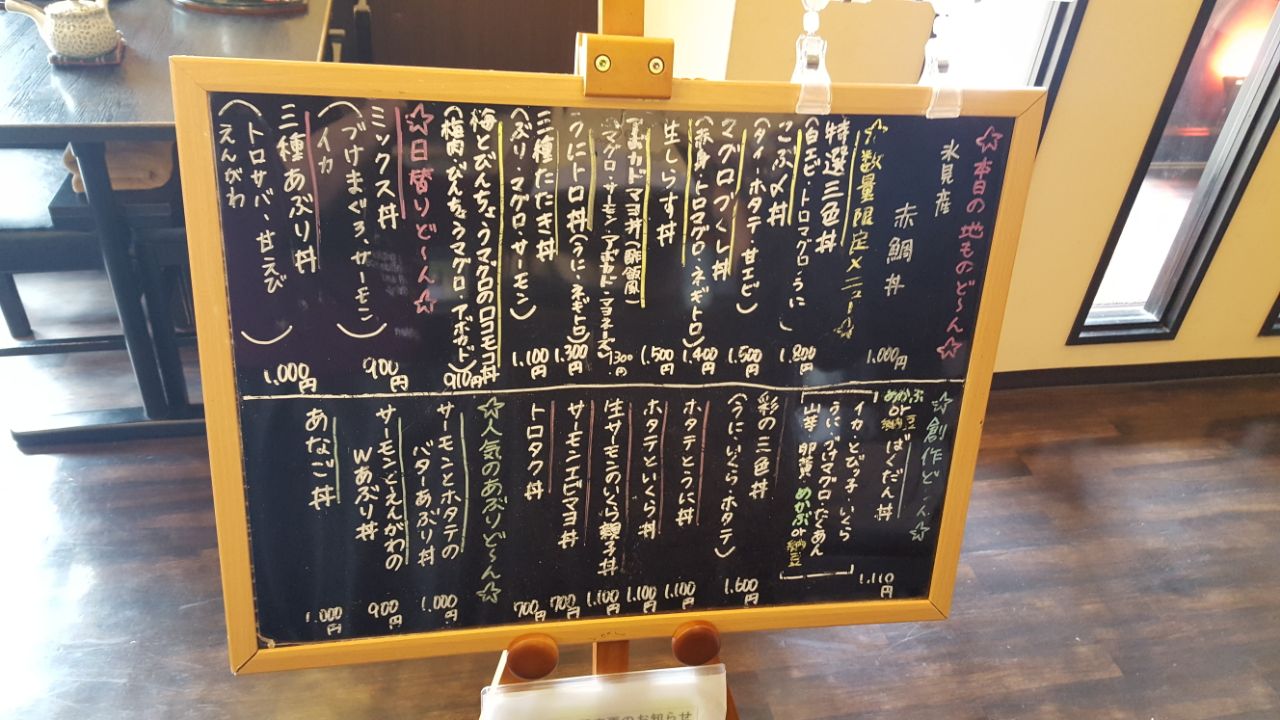 ☆本日の地ものど〜ん☆
氷見産
赤鯛丼
1.000円
☆数量限定メニュー☆
特選三色丼
(白エビ・トロマグロ・うに)
1.800円
こぶ〆丼
(タイ・ホタテ・甘エビ)
1.500円
マグロづくし丼
(赤身・トロマグロ・ネギトロ)
1.400円
生しらす丼
1.500円
アボカドマヨ丼(酢飯風)
(マグロ・サーモン・アボカド・マヨネーズ)
1.300円
うにトロ丼(うに・ネギトロ)
1.300円
三種たたき丼
(ぶり・マグロ・サーモン)
1.100円
梅とびんちょうマグロのロコモコ丼
(梅肉・びんちょうマグロ・アボカド)
910円
☆日替りど〜ん☆
ミックス丼
(づけまぐろ、サーモン
イカ)
900円
三種あぶり丼
(トロサバ、甘えび
えんがわ)
1.000円
☆創作ど〜ん☆
めかぶor納豆ばくだん丼
イカ・とびっ子・いくら
うに・づけマグロ・たくあん
山芋・卵黄・めかぶor納豆
1.110円
彩の三色丼
(うに・いくら・ホタテ)
1.600円
ホタテとうに丼
1.100円
ホタテといくら丼
1.100円
生サーモンのいくら親子丼
1.100円
サーモンエビマヨ丼
700円
トロタク丼
700円
☆人気のあぶりど〜ん☆
サーモンとホタテの
バターあぶり丼
1.000円
サーモンとえんがわの
Wあぶり丼
900円
あなご丼
1.000円
のお知らせ